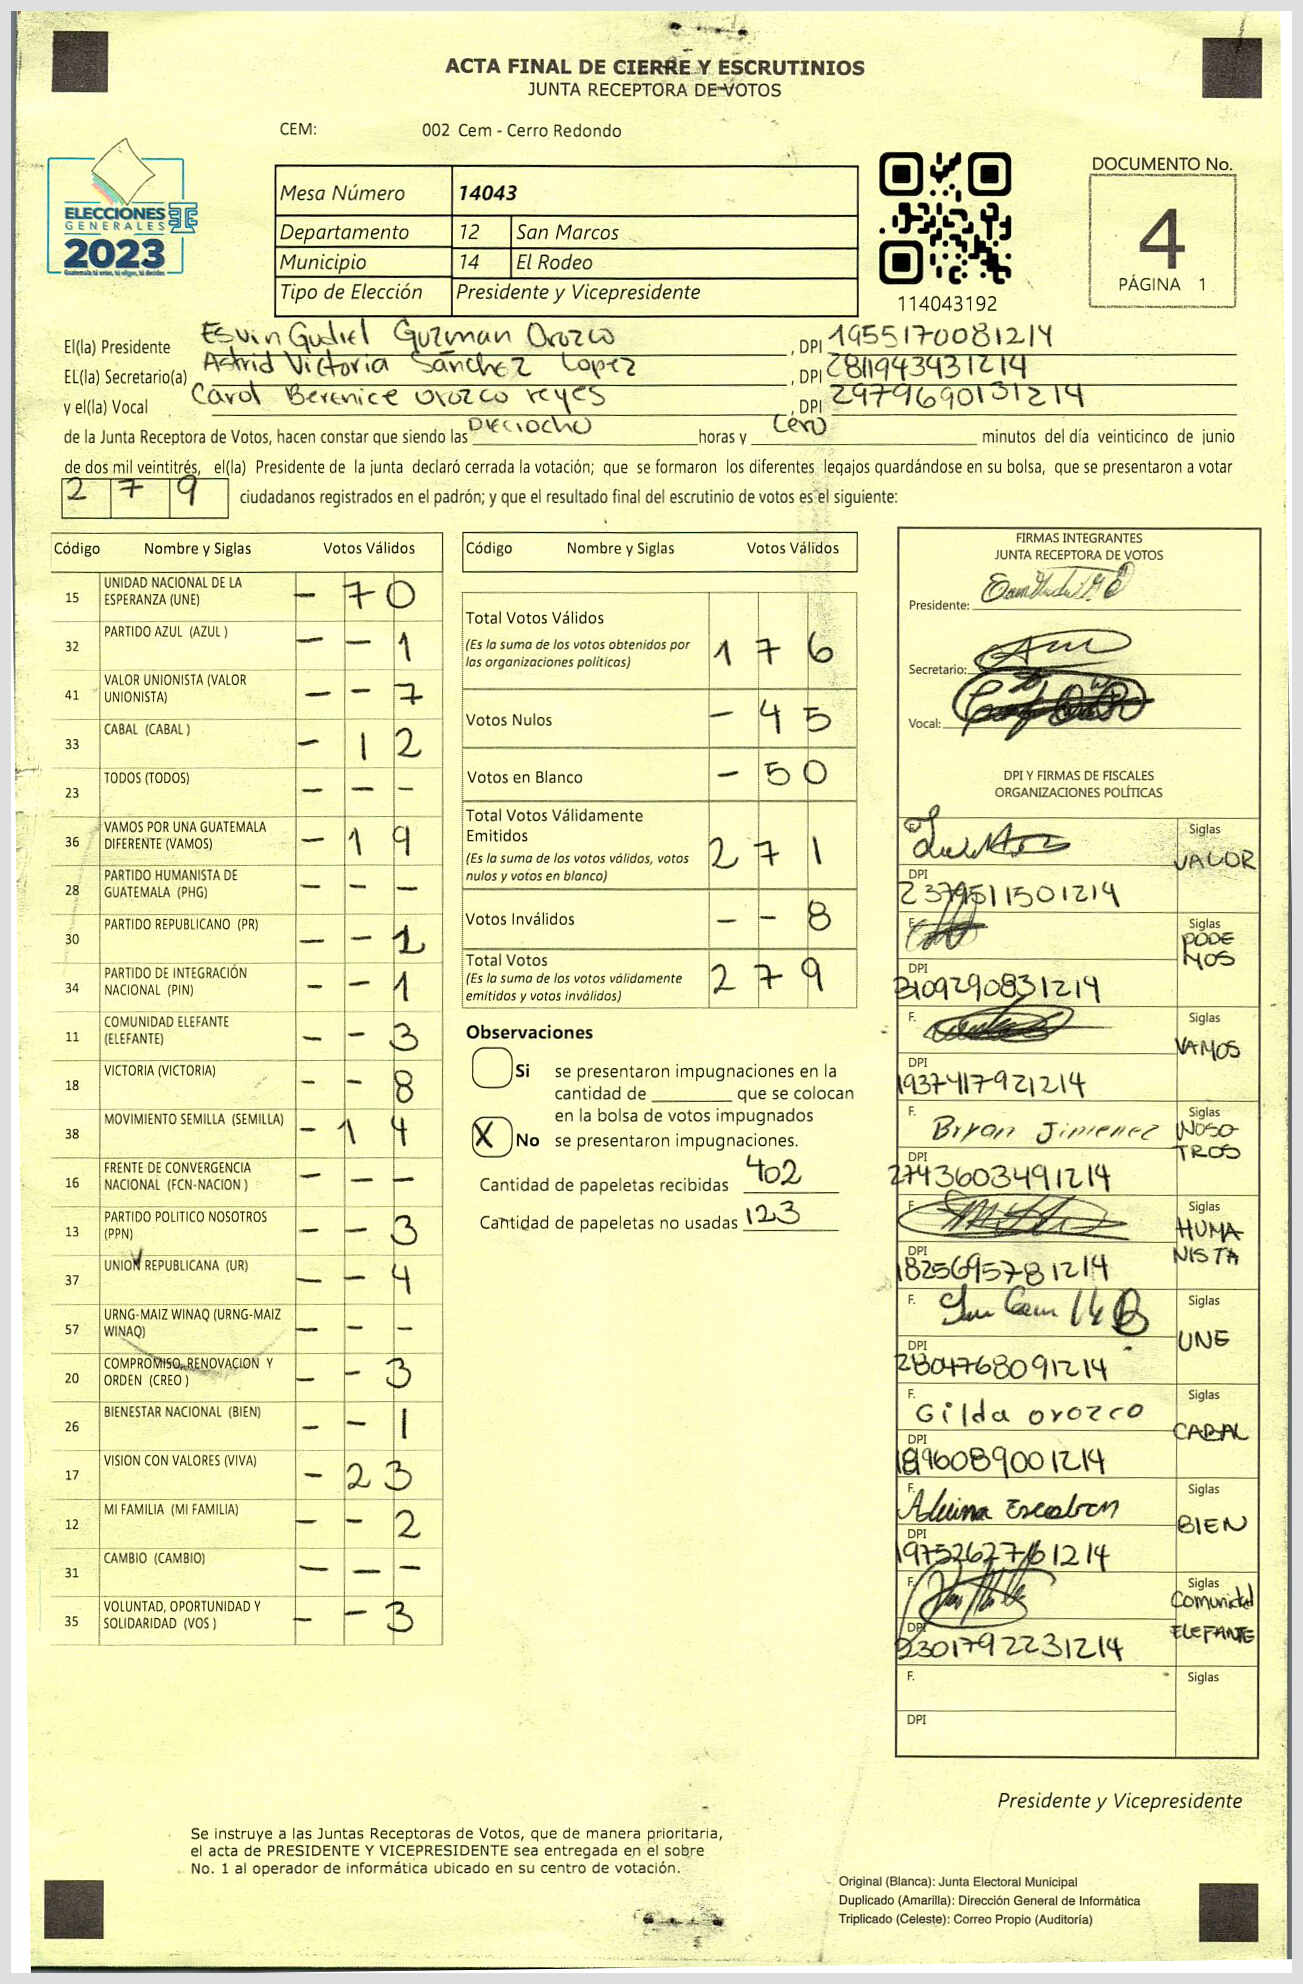 ACTA FINAL DE CIERRE Y ESCRUTINIOS
JUNTA RECEPTORA DE VOTOS
CEM: 002 Cem - Cerro Redondo
ELECCIONES
GENERALES
2023
Mesa Número 14043
Departamento 12 San Marcos
Municipio 14 El Rodeo
Tipo de Elección Presidente y Vicepresidente
114043192
DOCUMENTO No.
4
PÁGINA 1
El(la) Presidente Esvin Gudiel Guzman Orozco, DPI 1955170081214
EL(la) Secretario(a) Astrid Victoria Sánchez Lopez, DPI 2811943431214
y el(la) Vocal Carol Berenice orozco reyes, DPI 2979690131214
de la Junta Receptora de Votos, hacen constar que siendo las Dieciocho horas y Cero minutos del día veinticinco de junio
de dos mil veintitrés, el(la) Presidente de la junta declaró cerrada la votación; que se formaron los diferentes legajos quardándose en su bolsa, que se presentaron a votar
2 7 9 ciudadanos registrados en el padrón; y que el resultado final del escrutinio de votos es el siguiente:
Código Nombre y Siglas Votos Válidos
15 UNIDAD NACIONAL DE LA ESPERANZA (UNE) - 7 0
32 PARTIDO AZUL (AZUL ) - - 1
41 VALOR UNIONISTA (VALOR UNIONISTA) - - 7
33 CABAL (CABAL ) - 1 2
23 TODOS (TODOS) - - -
36 VAMOS POR UNA GUATEMALA DIFERENTE (VAMOS) - 1 9
28 PARTIDO HUMANISTA DE GUATEMALA (PHG) - - -
30 PARTIDO REPUBLICANO (PR) - - 2
34 PARTIDO DE INTEGRACIÓN NACIONAL (PIN) - - 1
11 COMUNIDAD ELEFANTE (ELEFANTE) - - 3
18 VICTORIA (VICTORIA) - - 8
38 MOVIMIENTO SEMILLA (SEMILLA) - 1 4
16 FRENTE DE CONVERGENCIA NACIONAL (FCN-NACION ) - - -
13 PARTIDO POLITICO NOSOTROS (PPN) - - 3
37 UNION REPUBLICANA (UR) - - 4
57 URNG-MAIZ WINAQ (URNG-MAIZ WINAQ) - - -
20 COMPROMISO, RENOVACION Y ORDEN (CREO ) - - 3
26 BIENESTAR NACIONAL (BIEN) - - 1
17 VISION CON VALORES (VIVA) - 2 3
12 MI FAMILIA (MI FAMILIA) - - 2
31 CAMBIO (CAMBIO) - - -
35 VOLUNTAD, OPORTUNIDAD Y SOLIDARIDAD (VOS ) - - 3
Código Nombre y Siglas Votos Válidos
Total Votos Válidos
(Es la suma de los votos obtenidos por
las organizaciones políticas) 1 7 6
Votos Nulos - 4 5
Votos en Blanco - 5 0
Total Votos Válidamente
Emitidos
(Es la suma de los votos válidos, votos
nulos y votos en blanco) 2 7 1
Votos Inválidos - - 8
Total Votos
(Es la suma de los votos válidamente
emitidos y votos inválidos) 2 7 9
Observaciones
Si se presentaron impugnaciones en la
cantidad de ________ que se colocan
en la bolsa de votos impugnados
X No se presentaron impugnaciones.
Cantidad de papeletas recibidas 402
Cantidad de papeletas no usadas 123
FIRMAS INTEGRANTES
JUNTA RECEPTORA DE VOTOS
Presidente:
Secretario:
Vocal:
DPI Y FIRMAS DE FISCALES
ORGANIZACIONES POLÍTICAS
F. Siglas VALOR
DPI 2379511501214
F. Siglas PODE
MOS
DPI 3109290831214
F. Siglas VAMOS
DPI 1937417921214
F. Bryan Jimenez Siglas NOSO-
TROS
DPI 2743603491214
F. Siglas HUMA
NISTA
DPI 1825695781214
F. Siglas UNE
DPI 2804768091214
F. Gilda orozco Siglas CABAL
DPI 1896089001214
F. Siglas BIEN
DPI 1975262761214
F. Siglas Comunidad
ELEFANTE
DPI 2301792231214
F. Siglas
DPI
Presidente y Vicepresidente
Se instruye a las Juntas Receptoras de Votos, que de manera prioritaria,
el acta de PRESIDENTE Y VICEPRESIDENTE sea entregada en el sobre
No. 1 al operador de informática ubicado en su centro de votación.
Original (Blanca): Junta Electoral Municipal
Duplicado (Amarilla): Dirección General de Informática
Triplicado (Celeste): Correo Propio (Auditoría)